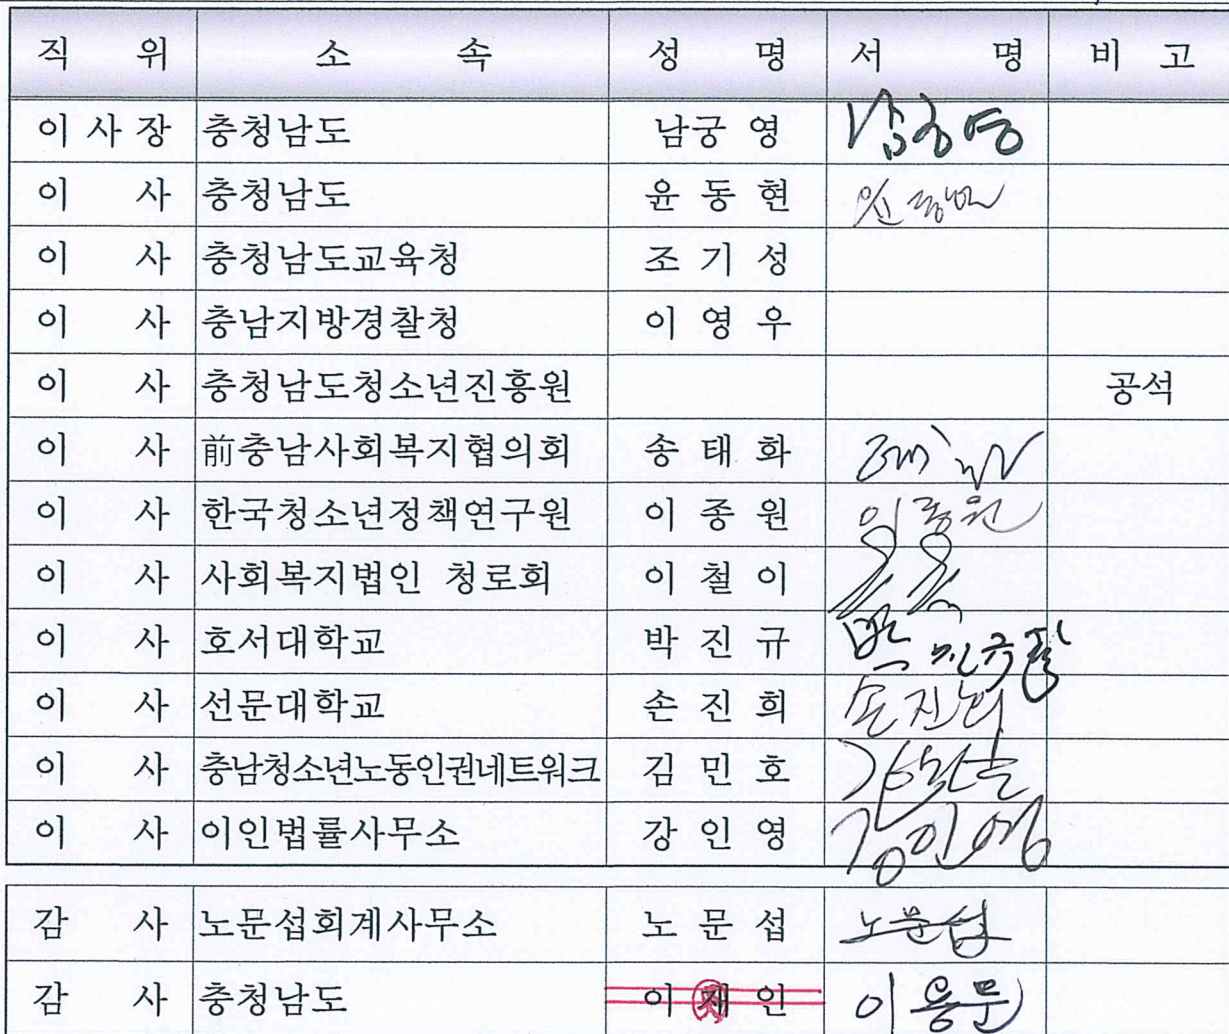 직 위 소 속 성 명 서 명 비 고
이 사 장 충청남도 남궁 영 남궁영
이 사 충청남도 윤 동 현
이 사 충청남도교육청 조 기 성
이 사 충남지방경찰청 이 영 우
이 사 충청남도청소년진흥원 공석
이 사 前충남사회복지협의회 송 태 화
이 사 한국청소년정책연구원 이 종 원 이종원
이 사 사회복지법인 청로회 이 철 이
이 사 호서대학교 박 진 규
이 사 선문대학교 손 진 희 손진희
이 사 충남청소년노동인권네트워크 김 민 호
이 사 이인법률사무소 강 인 영 강인영
감 사 노문섭회계사무소 노 문 섭 노문섭
감 사 충청남도 이 재 인 이용문